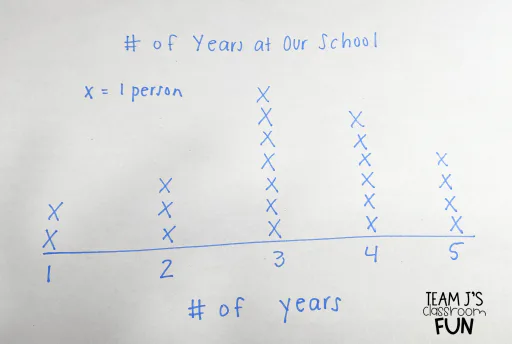 # of Years at Our School
x = 1 person
X
X X
X X
X X X
X X X X
X X X X X
X X X X X
1 2 3 4 5
# of years
TEAM J'S
Classroom
FUN